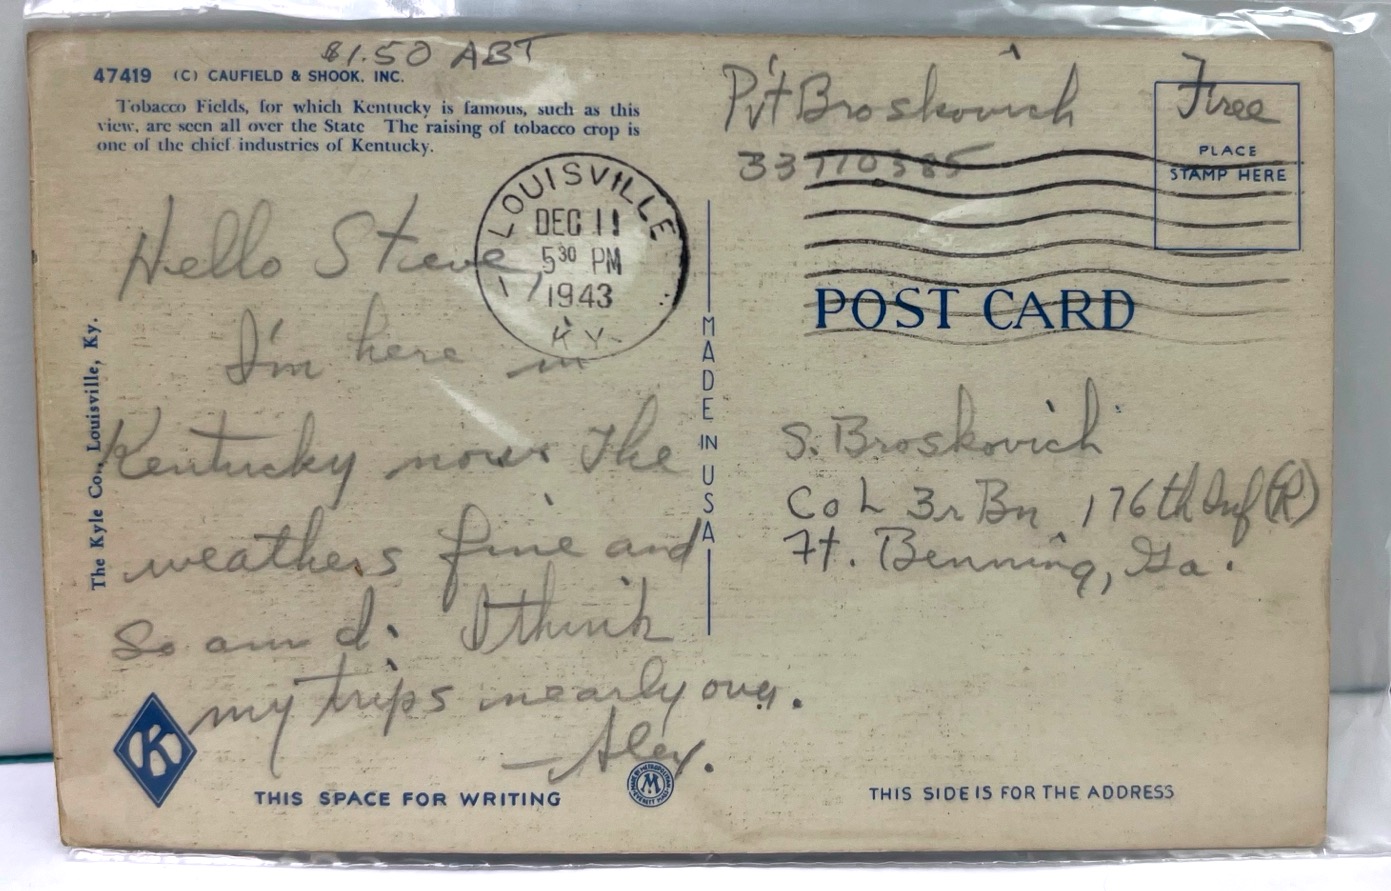 $1.50 ABT
47419 (C) CAUFIELD & SHOOK, INC.
Tobacco Fields, for which Kentucky is famous, such as this
view, are seen all over the State The raising of tobacco crop is
one of the chief industries of Kentucky.
Hello Steve,
I'm here in
Kentucky now. The
weathers fine and
So am I. I think
my trips nearly over.
—Alex.
The Kyle Co., Louisville, Ky.
K
THIS SPACE FOR WRITING
M
LOUISVILLE
DEC 11
5 30 PM
1943
KY.
MADE IN USA
Pvt Broskovich
33770385
Free
PLACE
STAMP HERE
POST CARD
S. Broskovich
Co L 3r Bn 176th Inf (R)
Ft. Benning, Ga.
THIS SIDE IS FOR THE ADDRESS